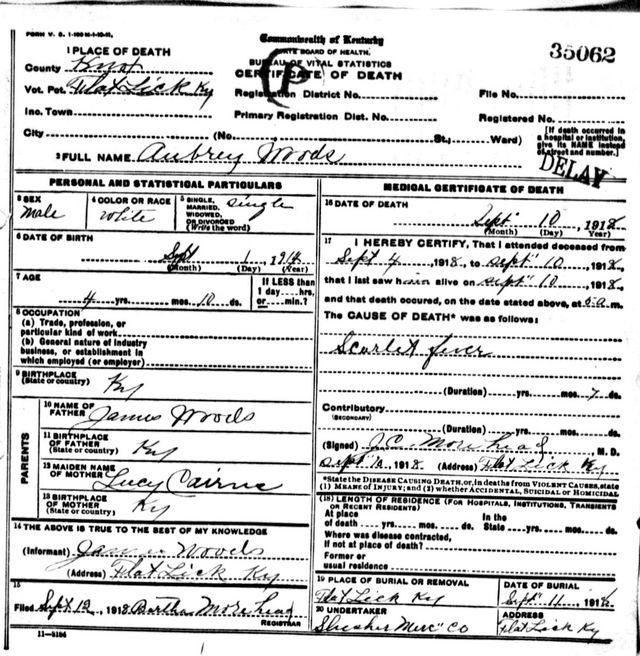 FORM V. S. 1-100 M-1-10-11.
Commonwealth of Kentucky
STATE BOARD OF HEALTH.
BUREAU OF VITAL STATISTICS
CERTIFICATE OF DEATH
(P
35062
1 PLACE OF DEATH
County Knox
Vot. Pct. Flat Lick Ky
Registration District No.
File No.
Inc. Town
Primary Registration Dist. No.
Registered No.
City (No. St.; Ward)
[If death occurred in a hospital or institution, give its NAME instead of street and number.]
2 FULL NAME Aubrey Woods
DELAY
PERSONAL AND STATISTICAL PARTICULARS
3 SEX
male
4 COLOR OR RACE
white
5 SINGLE, MARRIED, WIDOWED, OR DIVORCED (Write the word)
single
6 DATE OF BIRTH
Sept 1, 1914
(Month) (Day) (Year)
7 AGE
4 yrs. mos. 10 ds.
If LESS than 1 day hrs. or min.?
8 OCCUPATION
(a) Trade, profession, or particular kind of work
(b) General nature of industry business, or establishment in which employed (or employer)
9 BIRTHPLACE
(State or country) Ky
PARENTS
10 NAME OF FATHER James Woods
11 BIRTHPLACE OF FATHER (State or country) Ky
12 MAIDEN NAME OF MOTHER Lucy
13 BIRTHPLACE OF MOTHER (State or country) Ky
14 THE ABOVE IS TRUE TO THE BEST OF MY KNOWLEDGE
(Informant) James Woods
(Address) Flat Lick Ky
15
Filed Sept 12, 1918 Bertha Morehead
REGISTRAR
11-3184
MEDICAL CERTIFICATE OF DEATH
16 DATE OF DEATH
Sept 10, 1918
(Month) (Day) (Year)
17 I HEREBY CERTIFY, That I attended deceased from
Sept 4, 1918, to Sept 10, 1918,
that I last saw him alive on Sept 10, 1918,
and that death occured, on the date stated above, at 5 a.m.
The CAUSE OF DEATH* was as follows:
Scarlet fever
(Duration) yrs. mos. 7 ds.
Contributory
(SECONDARY)
(Duration) yrs. mos. ds.
(Signed) J.C. Morehead, M. D.
Sept 12, 1918 (Address) Flat Lick Ky
*State the DISEASE CAUSING DEATH, or, in deaths from VIOLENT CAUSES, state
(1) MEANS OF INJURY; and (2) whether ACCIDENTAL, SUICIDAL or HOMICIDAL
(18) LENGTH OF RESIDENCE (FOR HOSPITALS, INSTITUTIONS, TRANSIENTS OR RECENT RESIDENTS)
At place of death yrs. mos. ds.
In the State yrs. mos. ds.
Where was disease contracted, if not at place of death?
Former or usual residence
19 PLACE OF BURIAL OR REMOVAL
Flat Lick Ky
DATE OF BURIAL
Sept 11, 1918
20 UNDERTAKER
Slusher Merc Co
ADDRESS
Flat Lick Ky